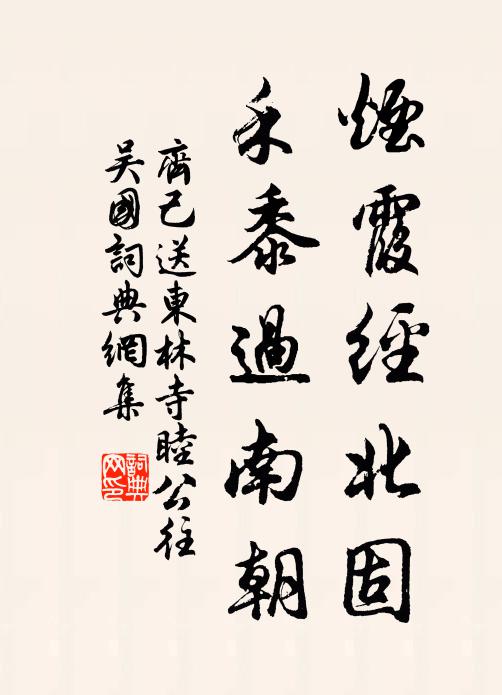 煙霞經北固
禾黍過南朝
齊己送東林寺睦公往
吳國詞典網集
詞典
网印